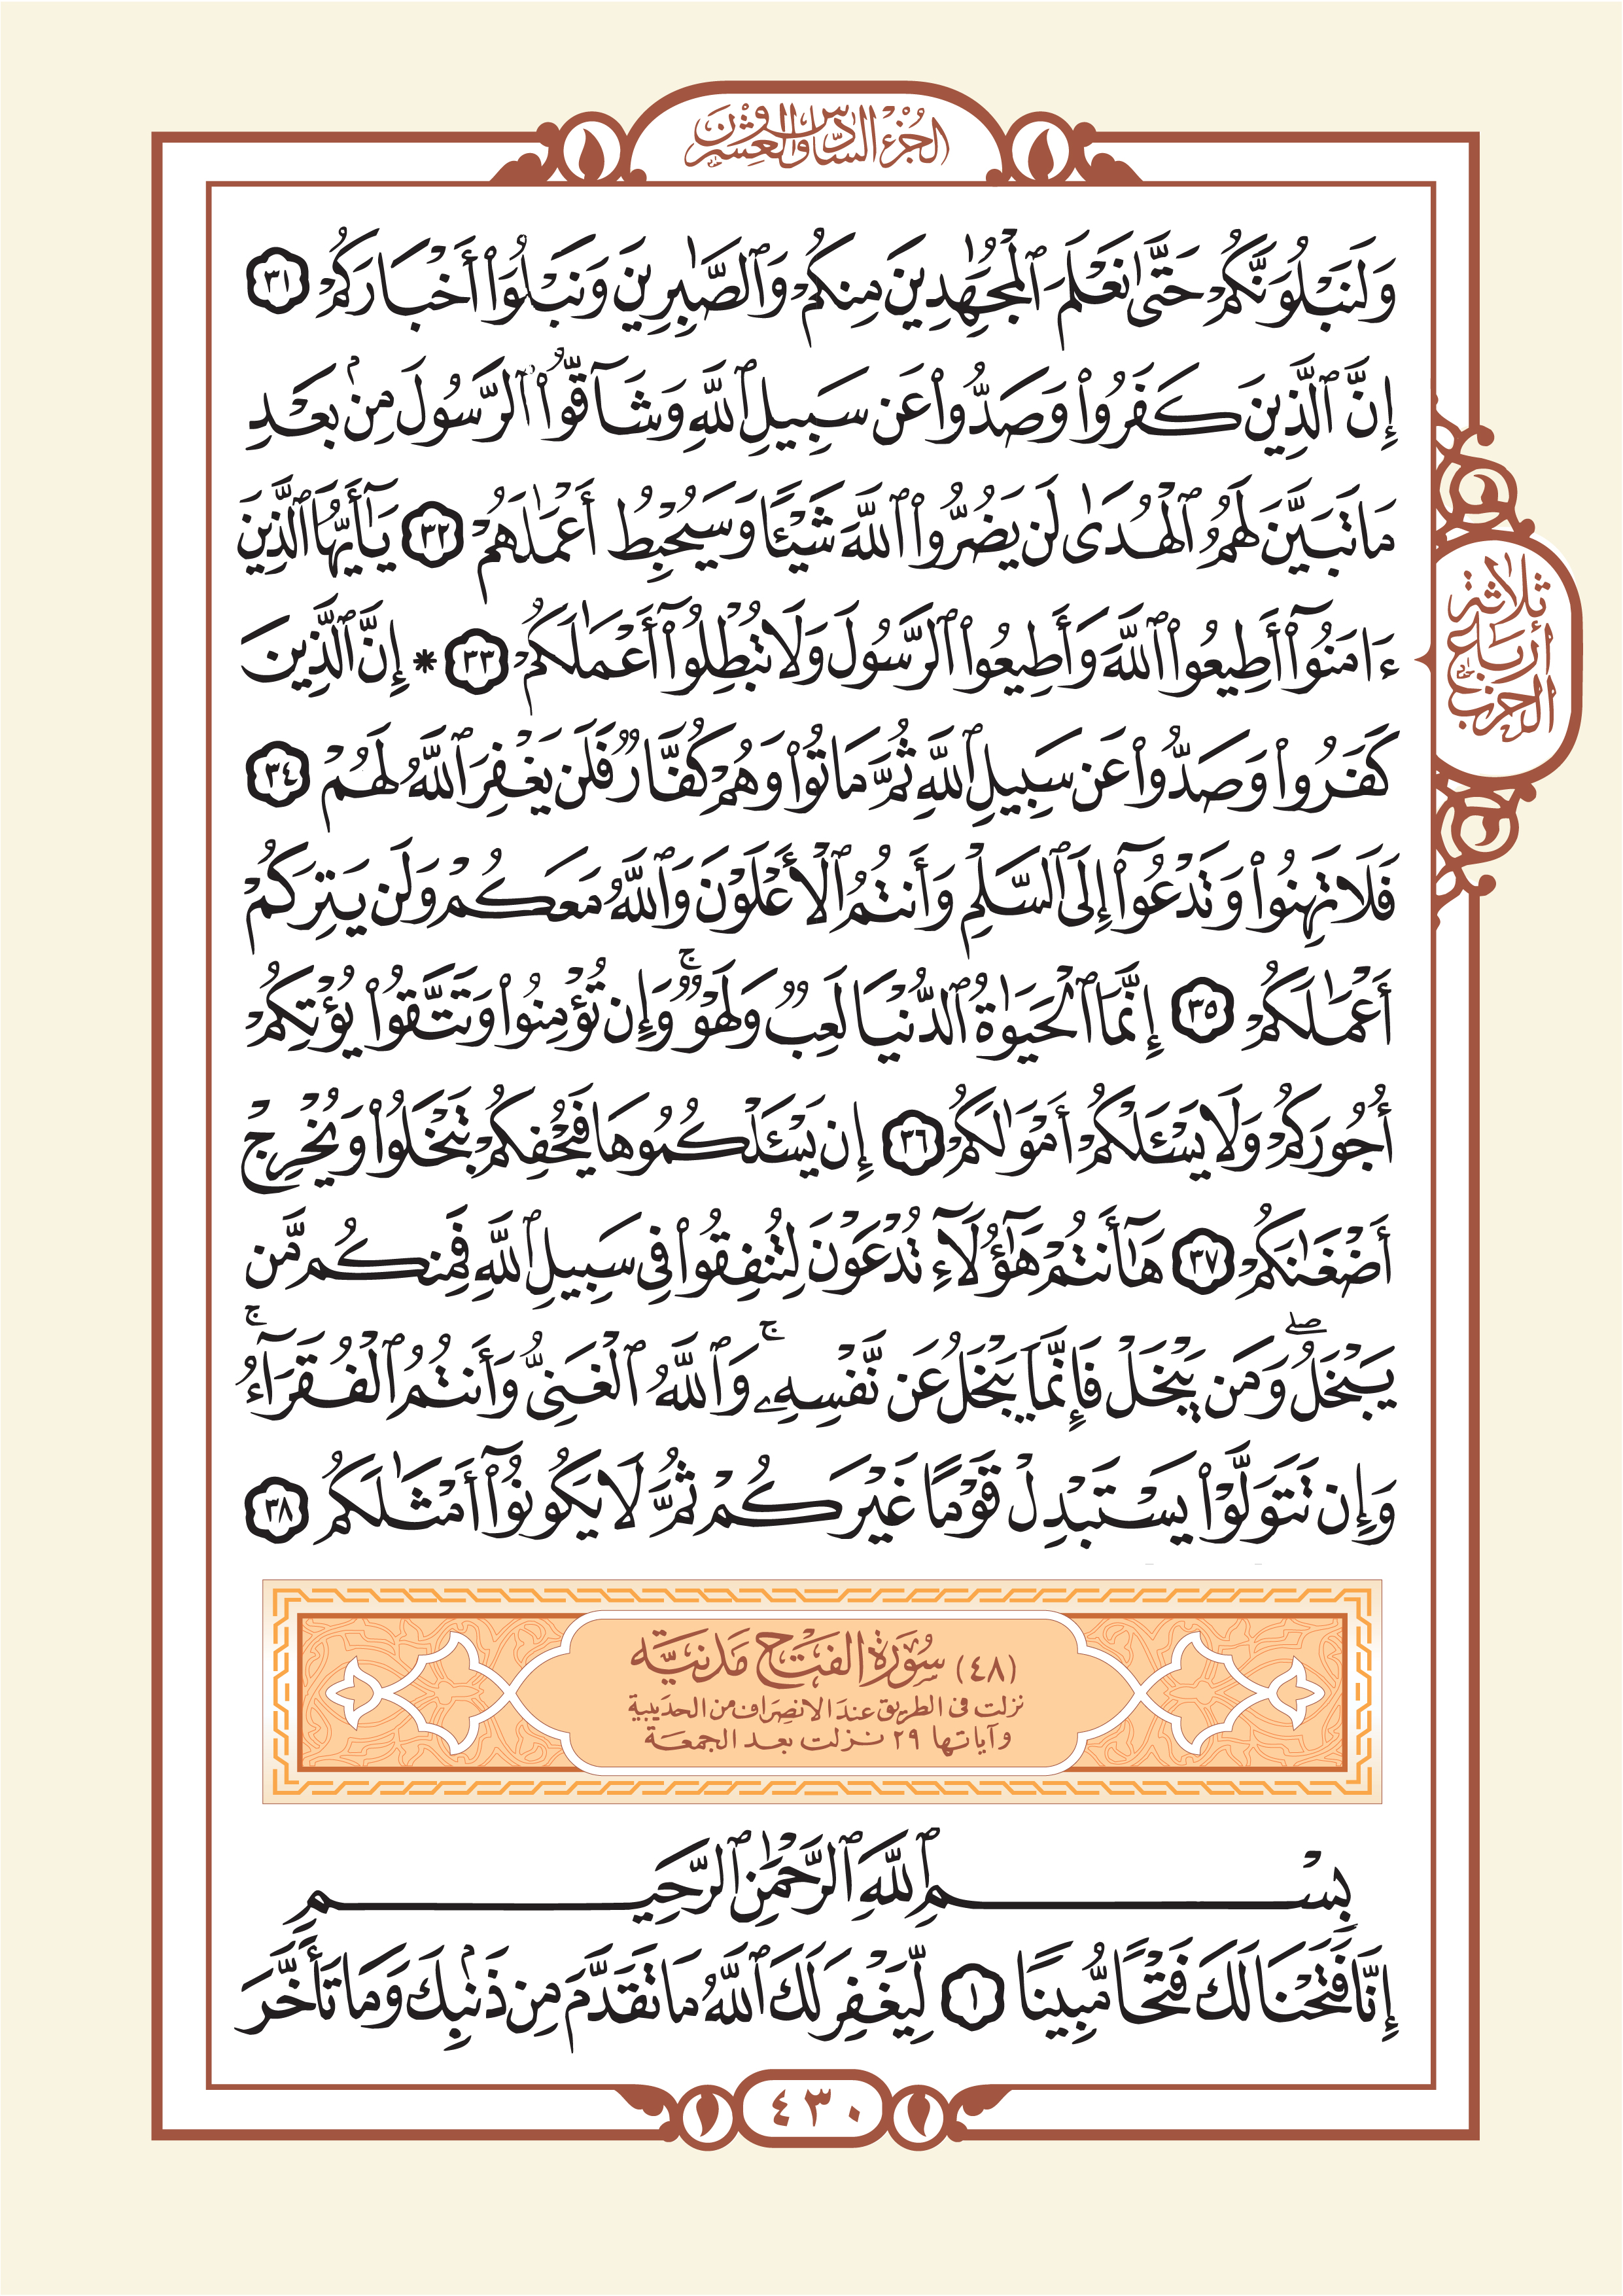 الجزء السادس والعشرون
وَلَنَبْلُوَنَّكُمْ حَتَّىٰ نَعْلَمَ ٱلْمُجَٰهِدِينَ مِنكُمْ وَٱلصَّٰبِرِينَ وَنَبْلُوَا۟ أَخْبَارَكُمْ ٣١
إِنَّ ٱلَّذِينَ كَفَرُوا۟ وَصَدُّوا۟ عَن سَبِيلِ ٱللَّهِ وَشَآقُّوا۟ ٱلرَّسُولَ مِنۢ بَعْدِ
مَا تَبَيَّنَ لَهُمُ ٱلْهُدَىٰ لَن يَضُرُّوا۟ ٱللَّهَ شَيْـًٔا وَسَيُحْبِطُ أَعْمَٰلَهُمْ ٣٢ يَٰٓأَيُّهَا ٱلَّذِينَ
ءَامَنُوٓا۟ أَطِيعُوا۟ ٱللَّهَ وَأَطِيعُوا۟ ٱلرَّسُولَ وَلَا تُبْطِلُوٓا۟ أَعْمَٰلَكُمْ ٣٣ * إِنَّ ٱلَّذِينَ
كَفَرُوا۟ وَصَدُّوا۟ عَن سَبِيلِ ٱللَّهِ ثُمَّ مَاتُوا۟ وَهُمْ كُفَّارٌ فَلَن يَغْفِرَ ٱللَّهُ لَهُمْ ٣٤
فَلَا تَهِنُوا۟ وَتَدْعُوٓا۟ إِلَى ٱلسَّلْمِ وَأَنتُمُ ٱلْأَعْلَوْنَ وَٱللَّهُ مَعَكُمْ وَلَن يَتِرَكُمْ
أَعْمَٰلَكُمْ ٣٥ إِنَّمَا ٱلْحَيَوٰةُ ٱلدُّنْيَا لَعِبٌ وَلَهْوٌ ۚ وَإِن تُؤْمِنُوا۟ وَتَتَّقُوا۟ يُؤْتِكُمْ
أُجُورَكُمْ وَلَا يَسْـَٔلْكُمْ أَمْوَٰلَكُمْ ٣٦ إِن يَسْـَٔلْكُمُوهَا فَيُحْفِكُمْ تَبْخَلُوا۟ وَيُخْرِجْ
أَضْغَٰنَكُمْ ٣٧ هَٰٓأَنتُمْ هَٰٓؤُلَآءِ تُدْعَوْنَ لِتُنفِقُوا۟ فِى سَبِيلِ ٱللَّهِ فَمِنكُم مَّن
يَبْخَلُ ۖ وَمَن يَبْخَلْ فَإِنَّمَا يَبْخَلُ عَن نَّفْسِهِۦ ۚ وَٱللَّهُ ٱلْغَنِىُّ وَأَنتُمُ ٱلْفُقَرَآءُ ۚ
وَإِن تَتَوَلَّوْا۟ يَسْتَبْدِلْ قَوْمًا غَيْرَكُمْ ثُمَّ لَا يَكُونُوٓا۟ أَمْثَٰلَكُم ٣٨
(٤٨) سُورَةُ الفَتْحِ مَدَنيَّة
نزلت فى الطريق عند الانصراف من الحديبية
وآياتها ٢٩ نزلت بعد الجمعة
بِسْمِ ٱللَّهِ ٱلرَّحْمَٰنِ ٱلرَّحِيمِ
إِنَّا فَتَحْنَا لَكَ فَتْحًا مُّبِينًا ١ لِّيَغْفِرَ لَكَ ٱللَّهُ مَا تَقَدَّمَ مِن ذَنۢبِكَ وَمَا تَأَخَّرَ
ثلاثة
أرباع
الحزب
٤٣٠